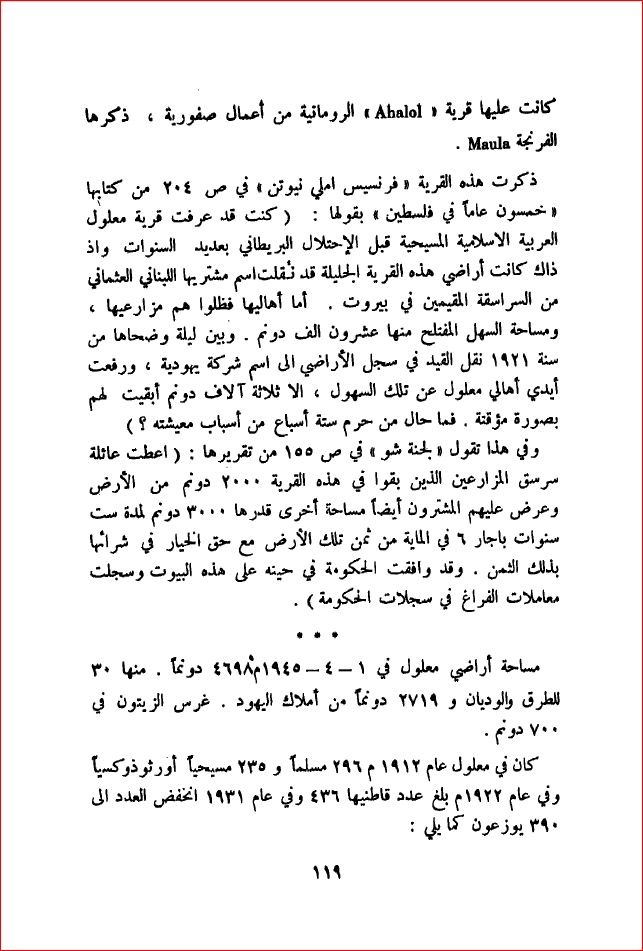 كانت عليها قرية « Ahalol » الرومانية من أعمال صفورية ، ذكرها
الفرنجة Maula .
ذكرت هذه القرية « فرنسيس املي نيوتن » في ص ٢٠٤ من كتابها
« خمسون عاماً في فلسطين » بقولها : ( كنت قد عرفت قرية معلول
العربية الاسلامية المسيحية قبل الإحتلال البريطاني بعديد السنوات واذ
ذاك كانت أراضي هذه القرية الجليلة قد نُقلت اسم مشتريها اللبناني العثماني
من السراسقة المقيمين في بيروت . أما أهاليها فظلوا هم مزارعيها ،
ومساحة السهل المفتلح منها عشرون الف دونم . وبين ليلة وضحاها من
سنة ١٩٢١ نقل القيد في سجل الأراضي الى اسم شركة يهودية ، ورفعت
أيدي أهالي معلول عن تلك السهول ، الا ثلاثة آلاف دونم أبقيت لهم
بصورة مؤقتة . فما حال من حرم ستة أسباع من أسباب معيشته ؟ )
وفي هذا تقول « لجنة شو » في ص ١٥٥ من تقريرها : ( اعطت عائلة
سرسق المزارعين الذين بقوا في هذه القرية ٢٠٠٠ دونم من الأرض
وعرض عليهم المشترون أيضاً مساحة أخرى قدرها ٣٠٠٠ دونم لمدة ست
سنوات باجار ٦ في الماية من ثمن تلك الأرض مع حق الخيار في شرائها
بذلك الثمن . وقد وافقت الحكومة في حينه على هذه البيوت وسجلت
معاملات الفراغ في سجلات الحكومة ) .
* * *
مساحة أراضي معلول في ١ – ٤ – ١٩٤٥م ٤٦٩٨ دونماً . منها ٣٠
للطرق والوديان و ٢٧١٩ دونماً من أملاك اليهود . غرس الزيتون في
٧٠٠ دونم .
كان في معلول عام ١٩١٢ م ٢٩٦ مسلماً و ٢٣٥ مسيحياً أورثوذوكسياً
وفي عام ١٩٢٢م بلغ عدد قاطنيها ٤٣٦ وفي عام ١٩٣١ انخفض العدد الى
٣٩٠ يوزعون كما يلي :
١١٩